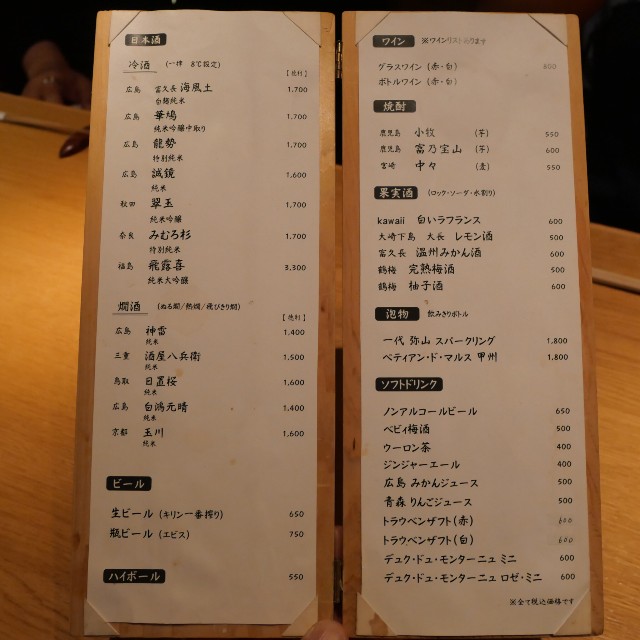 日本酒
冷酒 (一押 8℃設定)
【徳利】
広島 富久長 海風土 1,700
白麹純米
広島 華鳩 1,700
純米吟醸中取り
広島 龍勢 1,700
特別純米
広島 誠鏡 1,600
純米
秋田 翠玉 1,700
純米吟醸
奈良 みむろ杉 1,700
特別純米
福島 飛露喜 3,300
純米大吟醸
燗酒 (ぬる燗/熱燗/飛びきり燗)
【徳利】
広島 神雷 1,400
純米
三重 酒屋八兵衛 1,500
純米
鳥取 日置桜 1,600
純米
広島 白鴻元晴 1,400
純米
京都 玉川 1,600
純米
ビール
生ビール (キリン一番搾り) 650
瓶ビール (エビス) 750
ハイボール 550
ワイン ※ワインリストあります
グラスワイン (赤・白) 600
ボトルワイン (赤・白)
焼酎
鹿児島 小牧 (芋) 550
鹿児島 富乃宝山 (芋) 600
宮崎 中々 (麦) 550
果実酒 (ロック・ソーダ・水割り)
kawaii 白いラフランス 600
大崎下島 大長 レモン酒 500
富久長 温州みかん酒 600
鶴梅 完熟梅酒 500
鶴梅 柚子酒 600
泡物 飲みきりボトル
一代 弥山 スパークリング 1,800
ペティアン・ド・マルス 甲州 1,800
ソフトドリンク
ノンアルコールビール 650
ベビィ梅酒 500
ウーロン茶 400
ジンジャーエール 400
広島 みかんジュース 500
青森 りんごジュース 500
トラウベンザフト(赤) 600
トラウベンザフト(白) 600
デュク・ドュ・モンターニュ ミニ 600
デュク・ドュ・モンターニュ ロゼ・ミニ 600
※全て税込価格です